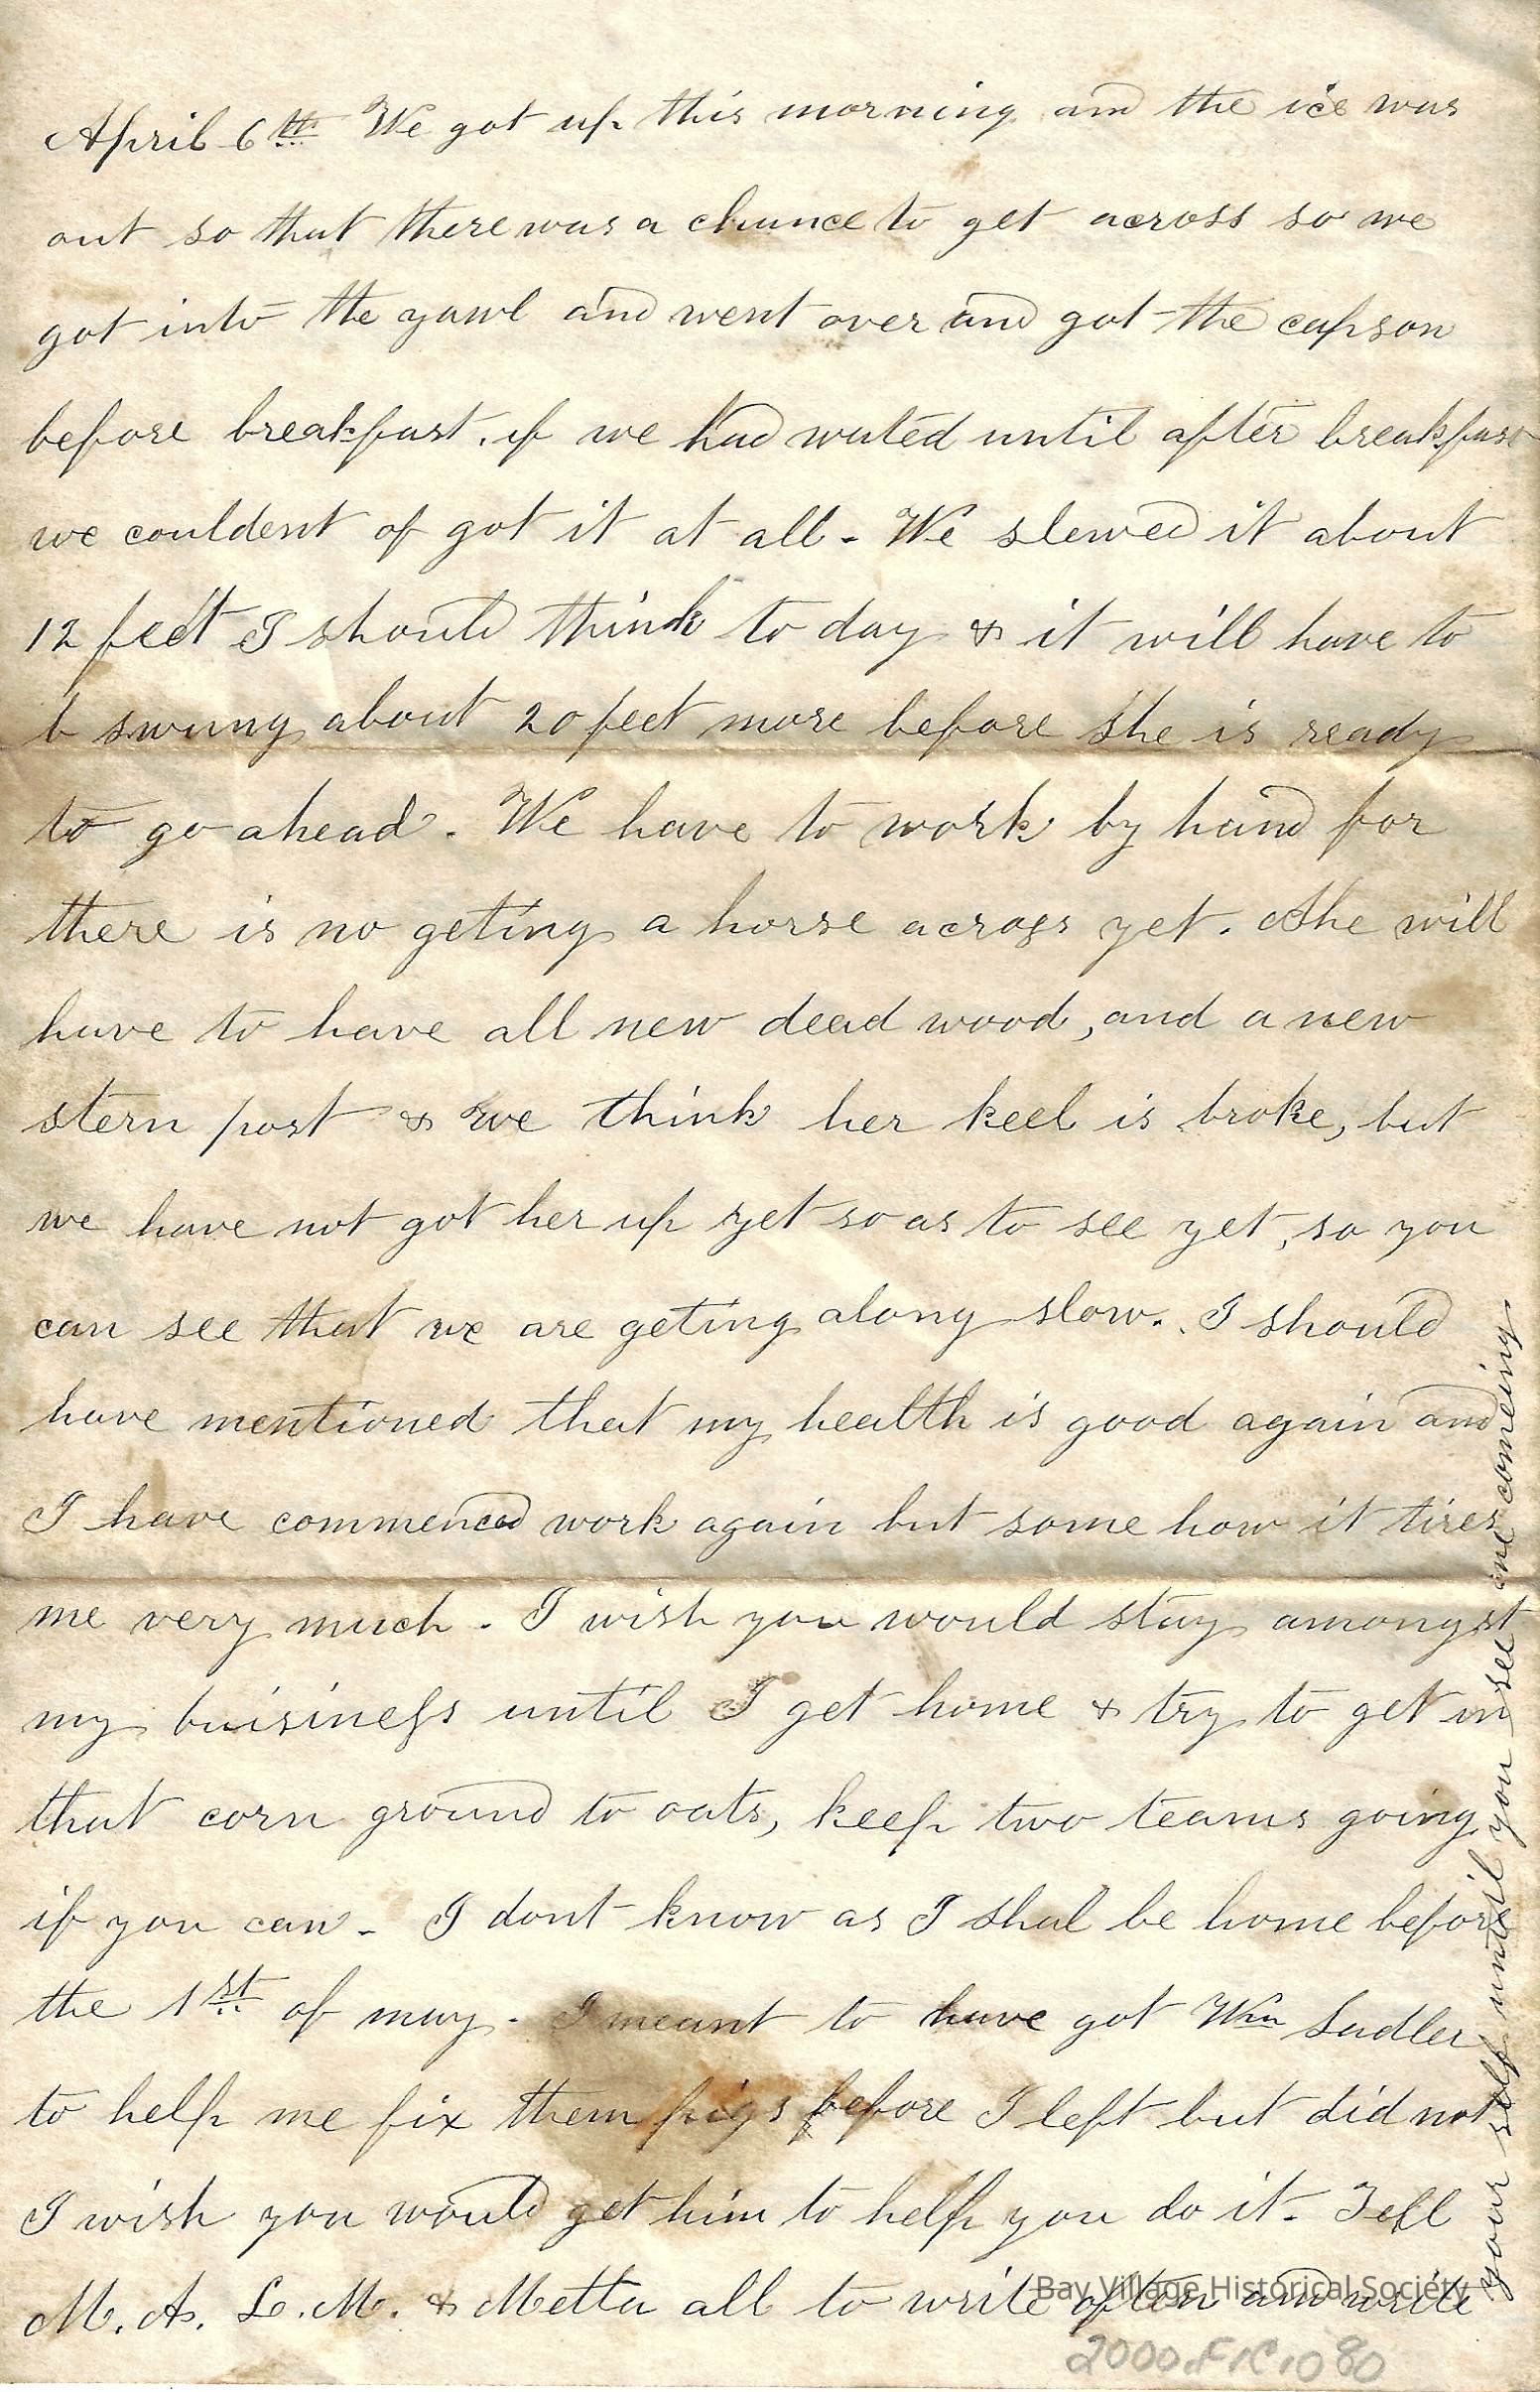 April 6th We got up this morning and the ice was
out so that there was a chance to get across so we
got into the yawl and went over and got the capson
before breakfast. if we had wated until after breakfast
we couldent of got it at all - We slewed it about
12 feet I should think to day & it will have to
b swung about 20 feet more before she is ready
to go ahead. We have to work by hand for
there is no geting a horse across yet. She will
have to have all new dead wood, and a new
stern post & we think her keel is broke, but
we have not got her up yet so as to see yet, so you
can see that we are geting along slow. I should
have mentioned that my health is good again and
I have commenced work again but some how it tires
me very much - I wish you would stay amongst
my buisiness until I get home & try to get in
that corn ground to oats, keep two teams going
if you can - I dont know as I shal be home before
the 1st of may - I meant to have got Wm Sadler
to help me fix them pigs before I left but did not
I wish you would get him to help you do it - Tell
M. A. L. M. & Metta all to write often and write
your self until you see me comeing
Bay Village Historical Society
2000.FIC.1080